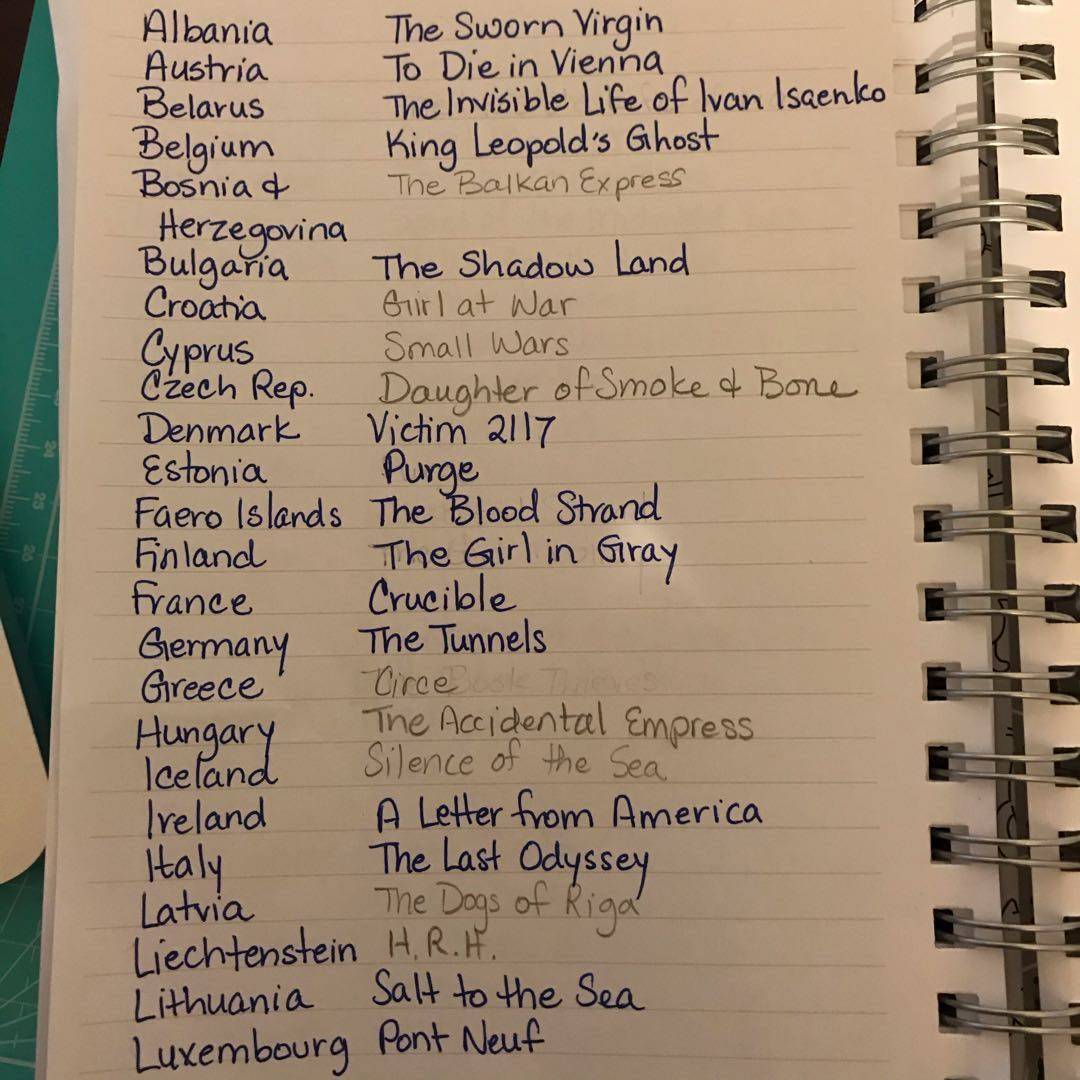 Albania The Sworn Virgin
Austria To Die in Vienna
Belarus The Invisible Life of Ivan Isaenko
Belgium King Leopold's Ghost
Bosnia & The Balkan Express
Herzegovina
Bulgaria The Shadow Land
Croatia Girl at War
Cyprus Small Wars
Czech Rep. Daughter of Smoke & Bone
Denmark Victim 2117
Estonia Purge
Faero Islands The Blood Strand
Finland The Girl in Gray
France Crucible
Germany The Tunnels
Greece Circe
Hungary The Accidental Empress
Iceland Silence of the Sea
Ireland A Letter from America
Italy The Last Odyssey
Latvia The Dogs of Riga
Liechtenstein H.R.H.
Lithuania Salt to the Sea
Luxembourg Pont Neuf